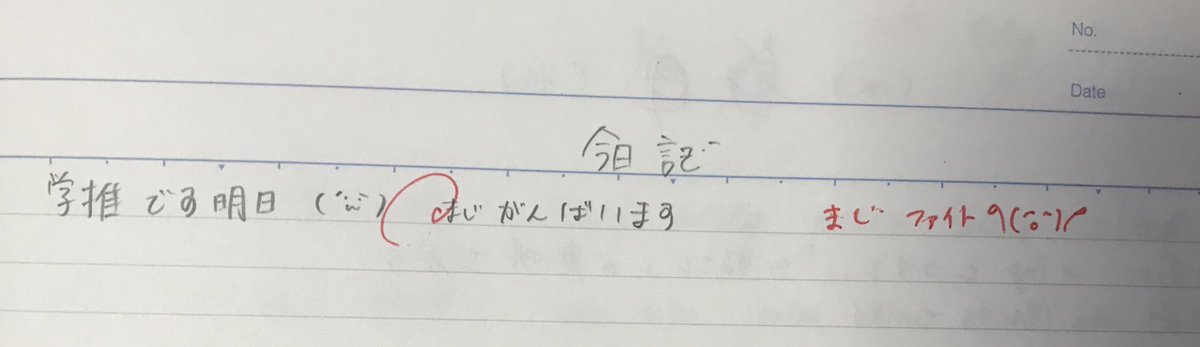 No.
Date
今日 記ど
学推 です 明日 (¨;) まじ がんばります
まじ ファイト 9(¨)/